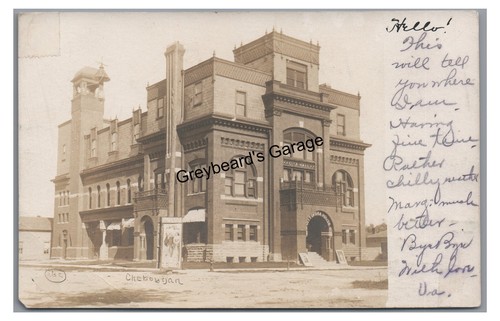 Hello!
This
will tell
you where
I am.
Having
fine time.
Rather
chilly
Marg: much
better.
Bye Bye
With love
Va.
Greybeard's Garage
Cheboygan